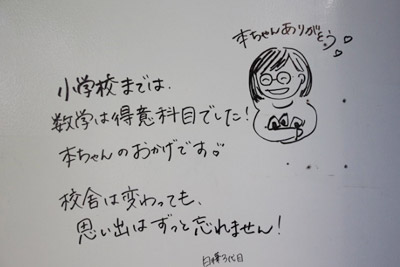 本ちゃんありがとう♡♡
小学校までは、
数学は得意科目でした!
本ちゃんのおかげです♡
校舎は変わっても、
思い出はずっと忘れません!
代目